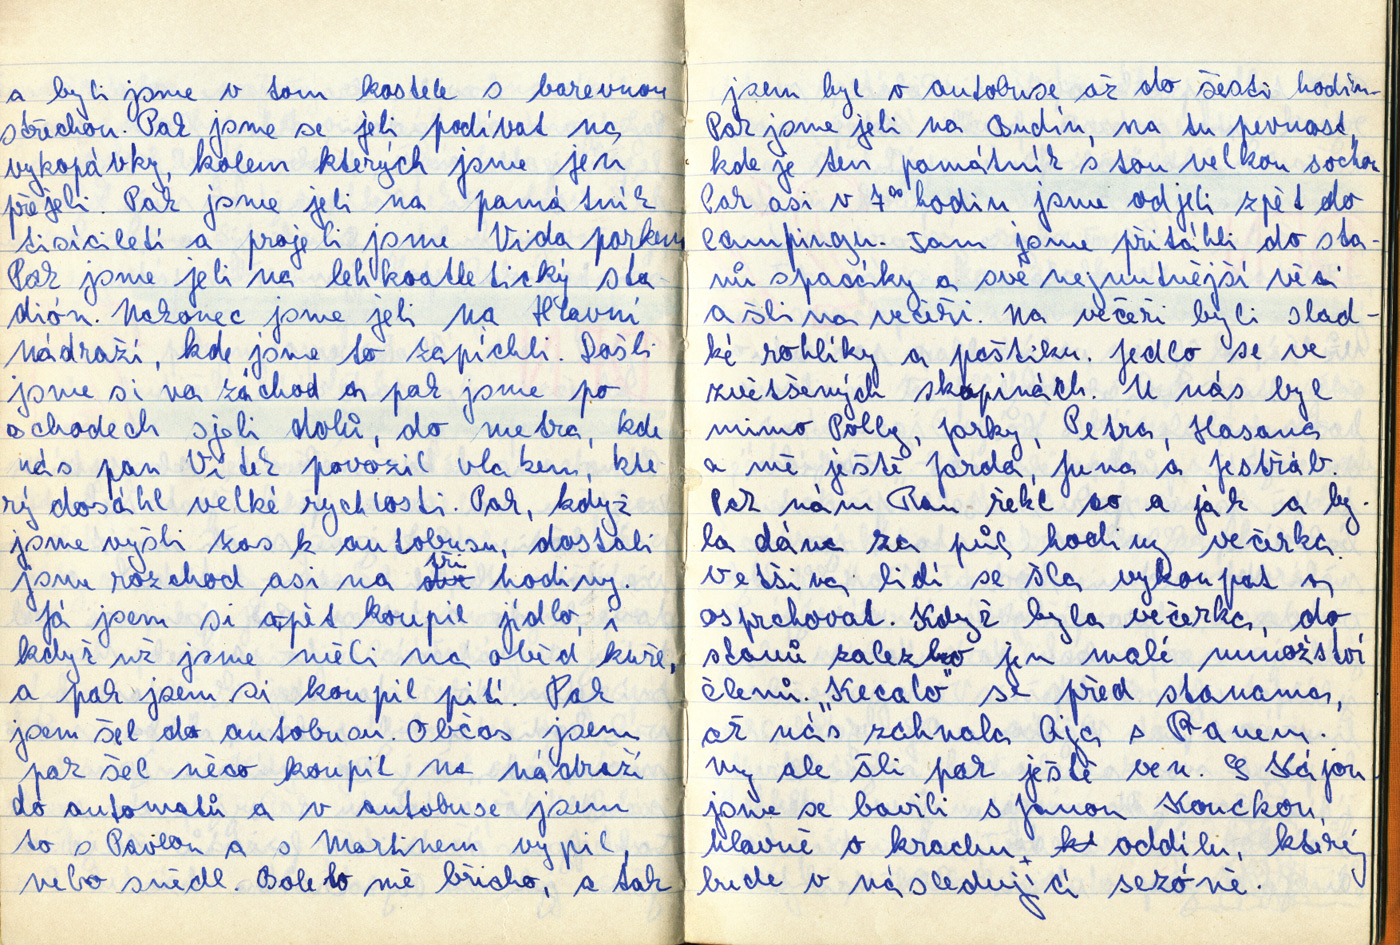 a byli jsme v tom kostele s barevnou
střechou. Pak jsme se jeli podívat na
vykopávky, kolem kterých jsme jen
přejeli. Pak jsme jeli na památník
tisíciletí a projeli jsme Vida parkem
Pak jsme jeli na lehkoatletický sta-
dión. Nakonec jsme jeli na Hlavní
nádraží, kde jsme to zapíchli. Došli
jsme si na záchod a pak jsme po
schodech sjeli dolů, do metra, kde
nás pan Vítek povozil vlakem, kte
rý dosáhl velké rychlosti. Pak, když
jsme vyšli zas k autobusu, dostali
jsme rozchod asi na tři hodiny.
Já jsem si opět koupil jídlo, i
když už jsme měli na oběd kuře,
a pak jsem si koupil pití. Pak
jsem šel do autobusu. Občas jsem
pak šel něco koupit na nádraží
do automatů a v autobuse jsem
to s Pavlem a s Martinem vypil,
nebo snědl. Bolelo mě břicho, a tak
jsem byl v autobuse až do šesti hodin.
Pak jsme jeli na Budín, na tu pevnost,
kde je ten památník s tou velkou sochou
Pak asi v 7⁰⁰ hodin jsme odjeli zpět do
campingu. Tam jsme přitáhli do sta-
nů spacáky a své nejnutnější věci
a šli na večeři. Na večeři byli slad-
ké rohlíky a paštiku. Jedlo se ve
zvětšených skupinách. U nás byl
mimo Polly, Jarky, Petra, Hasana
a mě ještě Jarda Juna a Jestřáb.
Pak nám Ran řekl co a jak a by-
la dána za půl hodiny večerka.
Většina lidí se šla vykoupat a
osprchovat. Když byla večerka, do
stanů zalezlo jen malé množství
členů. „Kecalo" se před stanama,
až nás zahnala Ája s Ranem.
My ale šli pak ještě ven. S Kájou
jsme se bavili s Janou Kouckou,
hlavně o krachu oddílu, který
bude v následující sezóně.